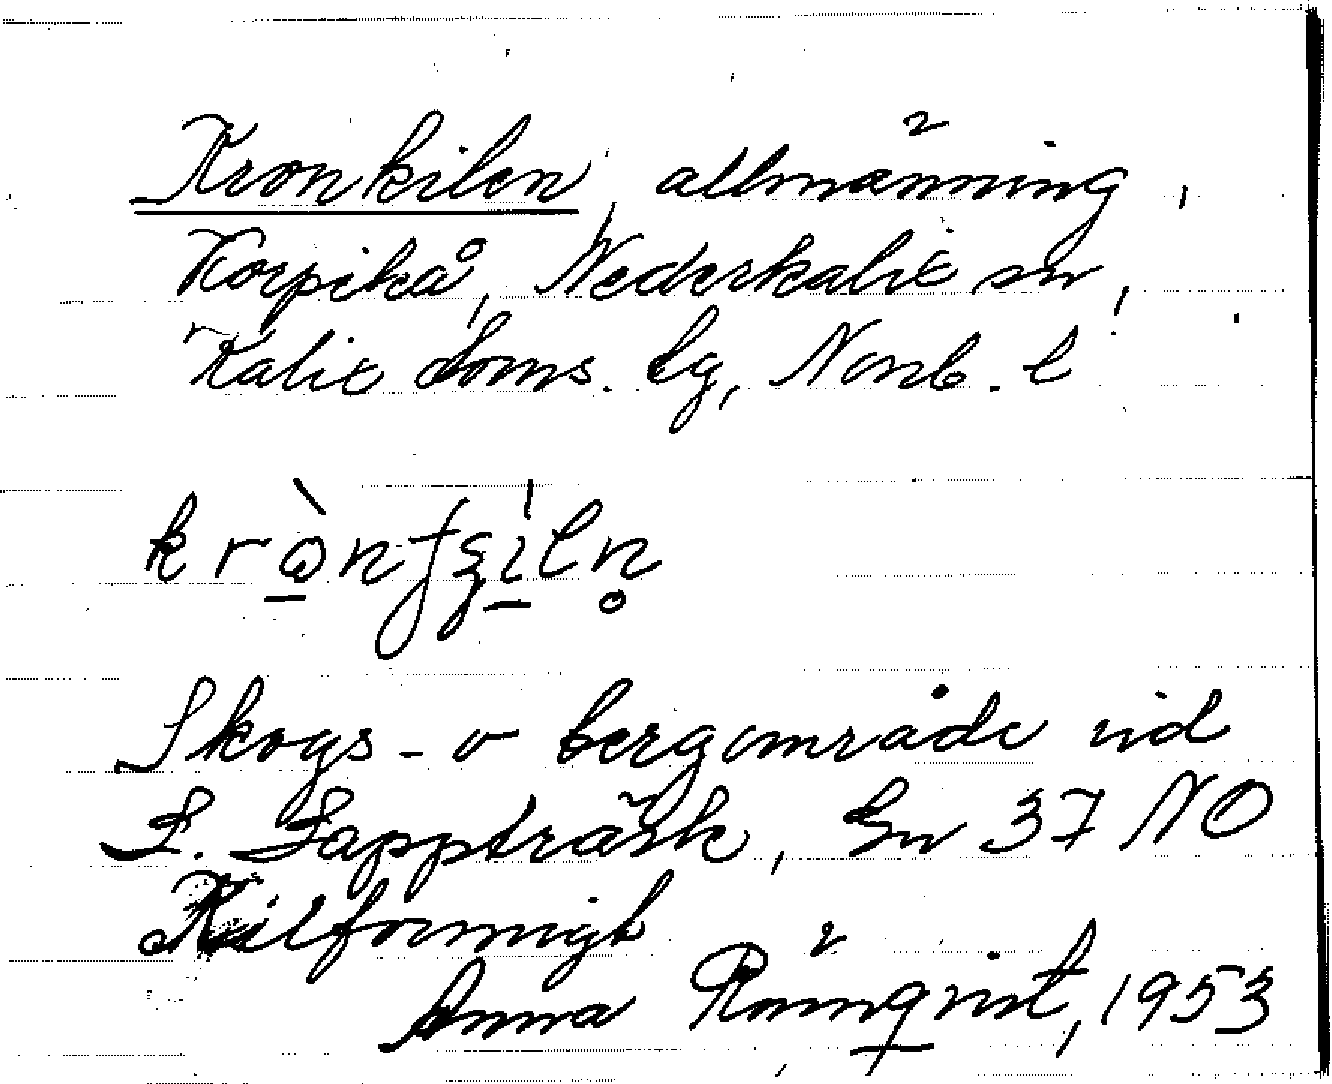 Kronkilen, allmänning,
Korpikå, Nederkalix sn,
Kalix doms. lg, Norrb. l
Skogs- o bergområde vid
L. Lappträsk, Gn 37 NO
Kilformigt
Anna Rönnqvist, 1953